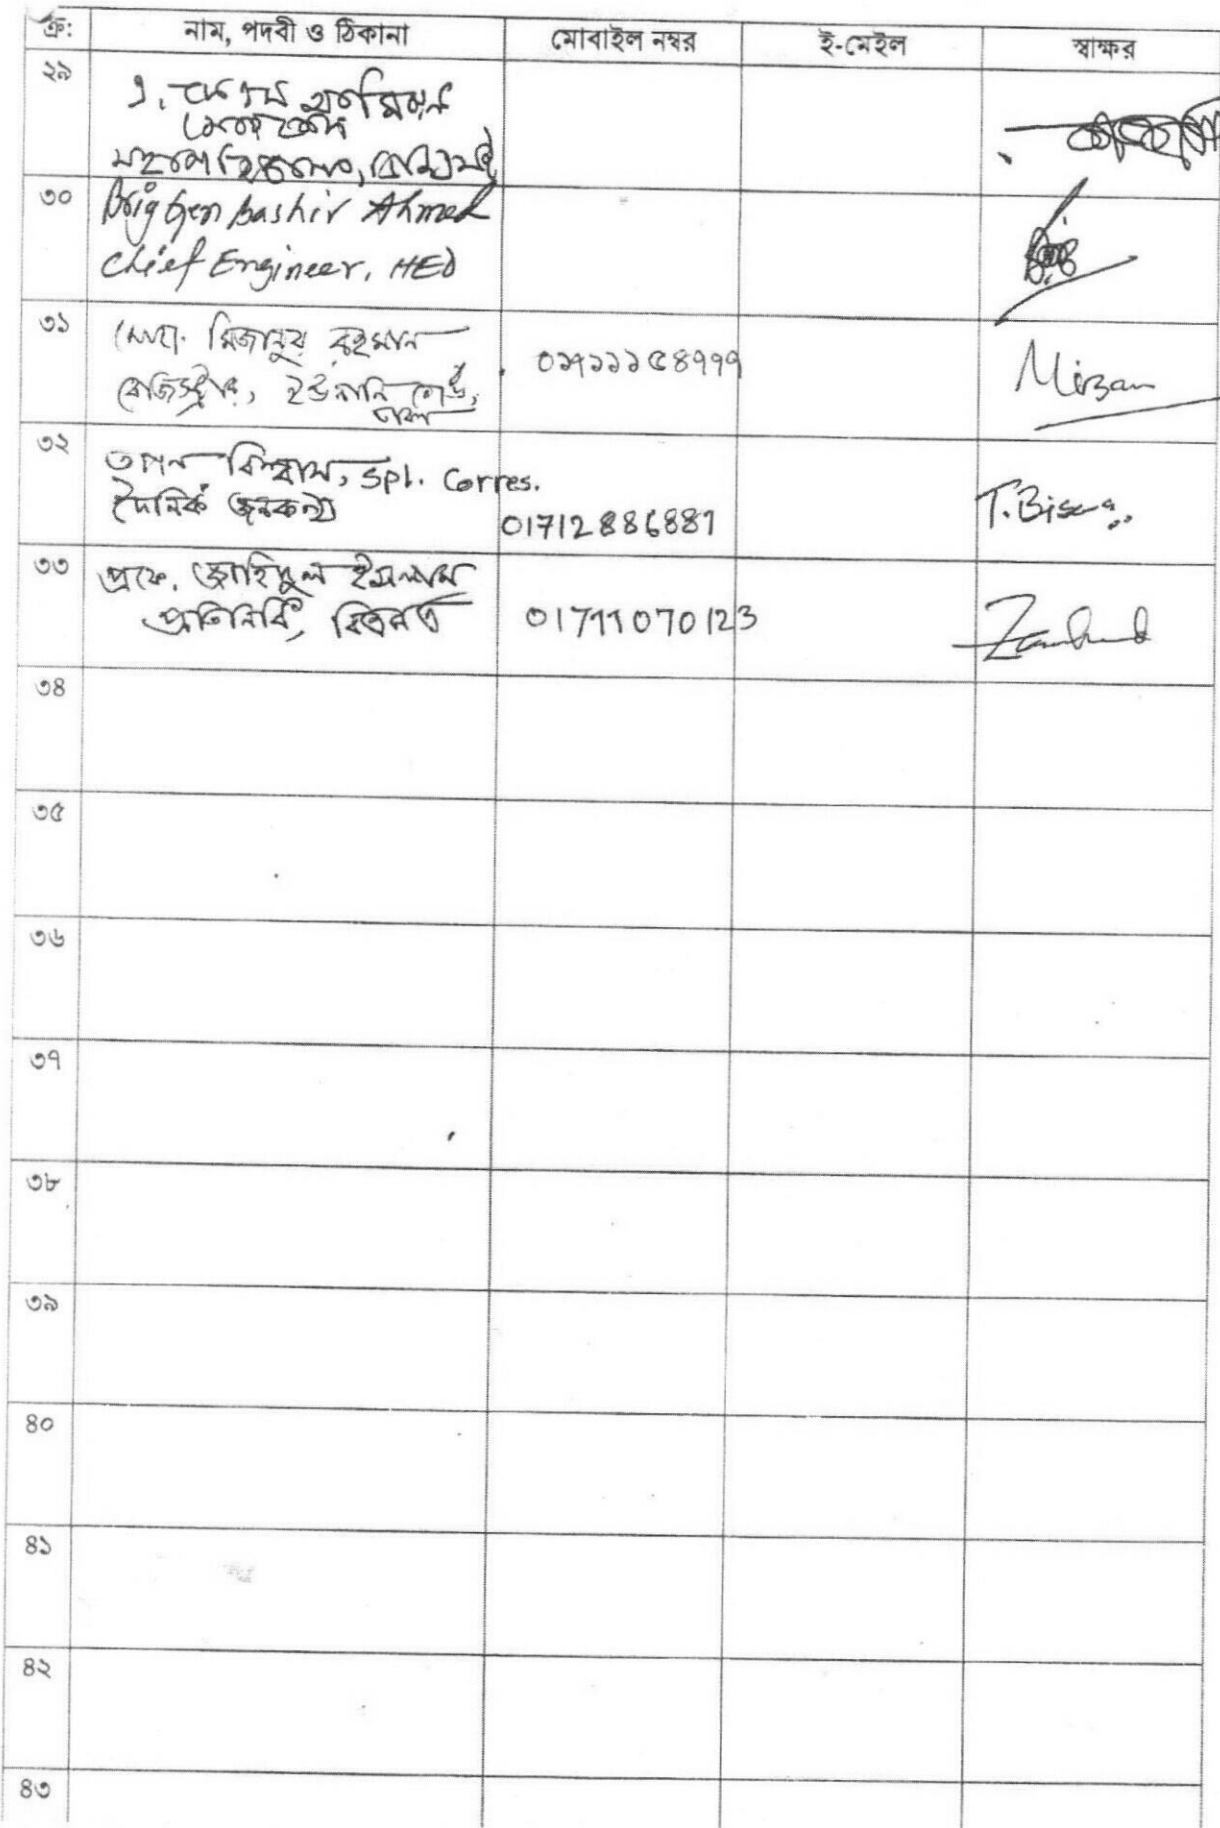 ক্র: নাম, পদবী ও ঠিকানা মোবাইল নম্বর ই-মেইল স্বাক্ষর
২৯
৩০ Brig Gen Bashir Ahmed
Chief Engineer, HED
৩১ মোহা. মিজানুর রহমান
রেজিস্ট্রার, ইউনানি বোর্ড, ০১৭১১১৫৪৭৭৭ Mizan
ঢাকা
৩২ তপন বিশ্বাস, Spl. Corres.
দৈনিক জনকন্ঠ 01712886881 T. Biswas
৩৩ প্রফে. জাহিদুল ইসলাম
প্রতিনিধি, 01711070123
৩৪
৩৫
৩৬
৩৭
৩৮
৩৯
৪০
৪১
৪২
৪৩